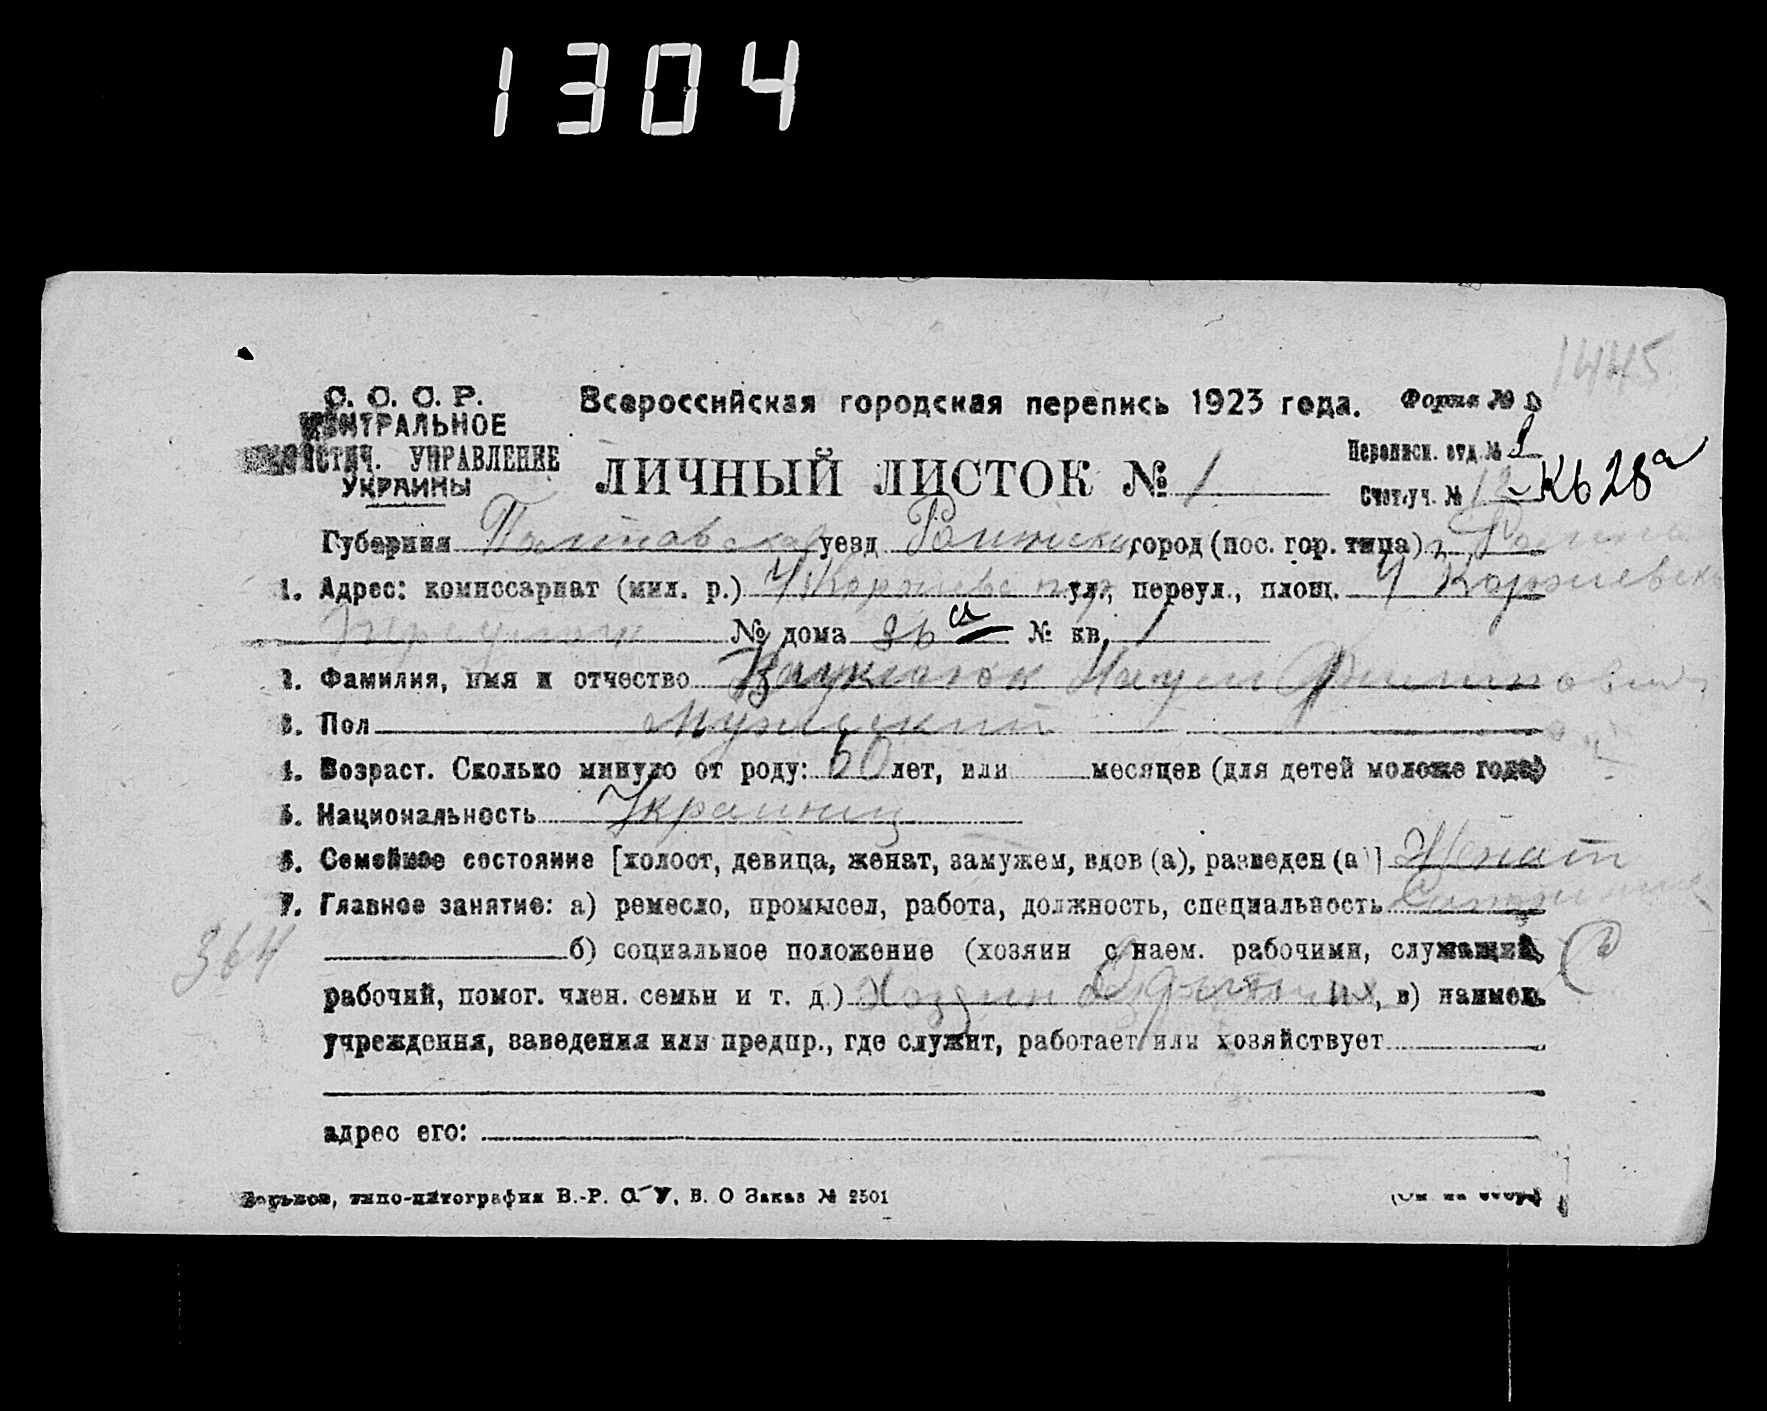 1304
1445
С. С. С. Р.
ЦЕНТРАЛЬНОЕ
СТАТИСТИЧ. УПРАВЛЕНИЕ
УКРАИНЫ
Всероссийская городская перепись 1923 года.
Форма №
ЛИЧНЫЙ ЛИСТОК № 1
Переписн. отд. №
Счетн. уч. № 12
Кв 28а
Губерния Полтавская уезд Роменский город (пос. гор. типа)
1. Адрес: комиссариат (мил. р.) ул., переул., площ.
переулок № дома № кв. 1
2. Фамилия, имя и отчество Наум Филиппович
3. Пол мужской
4. Возраст. Сколько минуло от роду: 60 лет, или месяцев (для детей моложе года)
5. Национальность Украинец
6. Семейное состояние [холост, девица, женат, замужем, вдов (а), разведен (а)] Женат
7. Главное занятие: а) ремесло, промысел, работа, должность, специальность
364
б) социальное положение (хозяин с наем. рабочими, служащий,
рабочий, помог. член. семьи и т. д.) Хозяин в) наимен.
учреждения, заведения или предпр., где служит, работает или хозяйствует
адрес его:
Харьков, типо-литография В.-Р. О. У. В. О Заказ № 2501